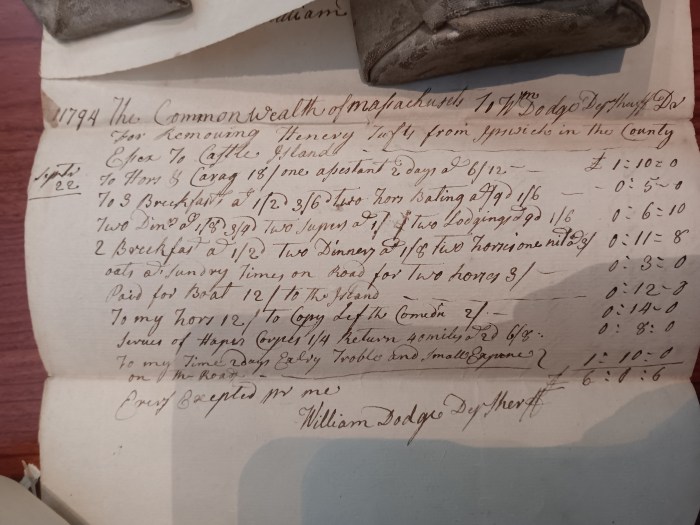 illiam
1794 The Common Wealth of Massachusets To Wm Dodge Dep Sheriff Dr
For Removing Henery Tufts from Ipswich in the County
Essex To Castle Island
Septbr 22 To Hors & Carag 18/ one assestant 2 days at 6/ 12 — £ 1=10=0
To 3 Breckfasts at 1/2d 3/6d two hors Bating at 9d 1/6 — 0=5=0
Two Dinrs at 1/8d two Supers at 1/ two Lodgings at 9d 1/6 0=6=10
2 Breckfast at 1/2d Two Dinners at 1/8 two horses one nit at 3/ 0=11=8
oats at Sundry Times on Road for two horses 3/ — 0=3=0
Paid for Boat 12/ to the Island 0=12=0
To my hors 12/ to Copy 2/ — 0=14=0
Serues of Corpes 1/4 Return 40 miles at 2d 6/8 0=8=0
To my Time 2 days Troble and Small Expence 1=10=0
on the Road
£ 6=0=6
Errors Excepted pr me
William Dodge Dep Sheriff